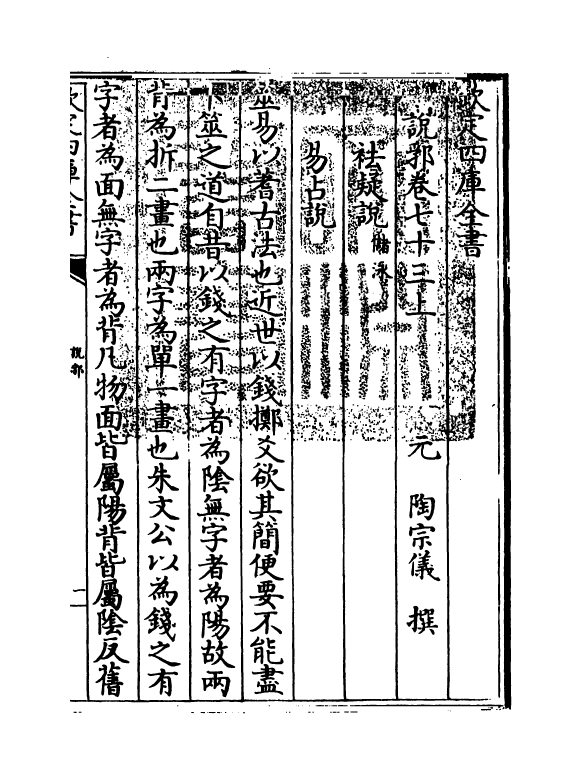 欽定四庫全書
說郛卷七十三上
元 陶宗儀 撰
祛疑說 儲泳
易占說
筮易以蓍古法也近世以錢擲爻欲其簡便要不能盡
卜筮之道自昔以錢之有字者為陰無字者為陽故兩
背為拆二畫也兩字為單一畫也朱文公以為錢之有
字者為面無字者為背凡物面皆屬陽背皆屬陰反舊
欽定四庫全書
說郛